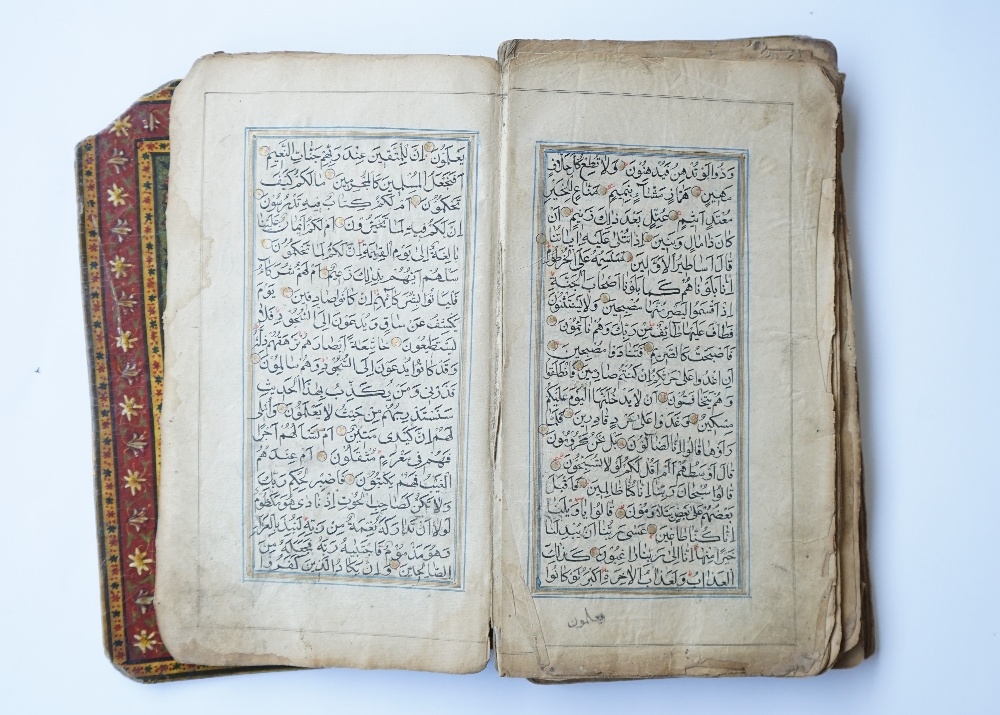 ودوا لو تدهن فيدهنون ولا تطع كل حلاف
مهين هماز مشاء بنميم مناع للخير
معتد اثيم عتل بعد ذلك زنيم ان
كان ذا مال وبنين اذا تتلى عليه اياتنا
قال اساطير الاولين سنسمه على الخرطوم
انا بلوناهم كما بلونا اصحاب الجنة
اذ اقسموا ليصرمنها مصبحين ولا يستثنون
فطاف عليها طائف من ربك وهم نائمون
فاصبحت كالصريم فتنادوا مصبحين
ان اغدوا على حرثكم ان كنتم صارمين فانطلقوا
وهم يتخافتون ان لا يدخلنها اليوم عليكم
مسكين وغدوا على حرد قادرين فلما
راوها قالوا انا لضالون بل نحن محرومون
قال اوسطهم الم اقل لكم لولا تسبحون
قالوا سبحان ربنا انا كنا ظالمين فاقبل
بعضهم على بعض يتلاومون قالوا يا ويلنا
انا كنا طاغين عسى ربنا ان يبدلنا
خيرا منها انا الى ربنا راغبون كذلك
العذاب ولعذاب الاخرة اكبر لو كانوا
يعلمون
يعلمون ان للمتقين عند ربهم جنات النعيم
افنجعل المسلمين كالمجرمين مالكم كيف
تحكمون ام لكم كتاب فيه تدرسون
ان لكم فيه لما تخيرون ام لكم ايمان علينا
بالغة الى يوم القيمة ان لكم لما تحكمون
سلهم ايهم بذلك زعيم ام لهم شركاء
فلياتوا بشركائهم ان كانوا صادقين يوم
يكشف عن ساق ويدعون الى السجود فلا
يستطيعون خاشعة ابصارهم ترهقهم ذلة
وقد كانوا يدعون الى السجود وهم سالمون
فذرني ومن يكذب بهذا الحديث
سنستدرجهم من حيث لا يعلمون واملي
لهم ان كيدي متين ام تسئلهم اجرا
فهم من مغرم مثقلون ام عندهم
الغيب فهم يكتبون فاصبر لحكم ربك
ولا تكن كصاحب الحوت اذ نادى وهو مكظوم
لولا ان تداركه نعمة من ربه لنبذ بالعراء
وهو مذموم فاجتبيه ربه فجعله من
الصالحين وان يكاد الذين كفروا